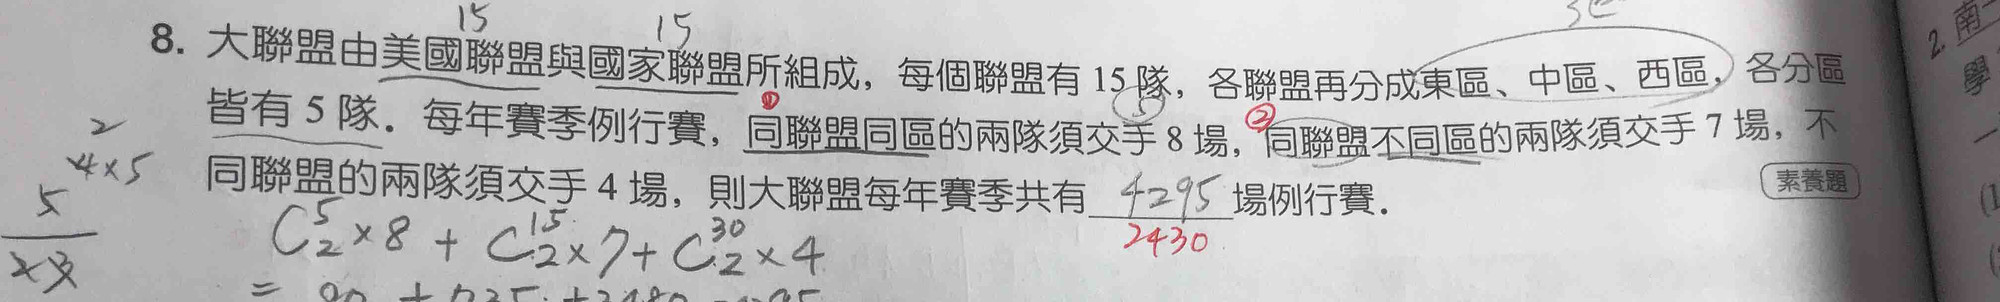 15 15
8. 大聯盟由美國聯盟與國家聯盟所組成，每個聯盟有 15 隊，各聯盟再分成東區、中區、西區，各分區
① 5 ②
皆有 5 隊．每年賽季例行賽，同聯盟同區的兩隊須交手 8 場，同聯盟不同區的兩隊須交手 7 場，不
同聯盟的兩隊須交手 4 場，則大聯盟每年賽季共有 4295 場例行賽．
素養題
2430
2
4×5
5
C⁵₂×8 + C¹⁵₂×7 + C³⁰₂×4
2. 南一
學